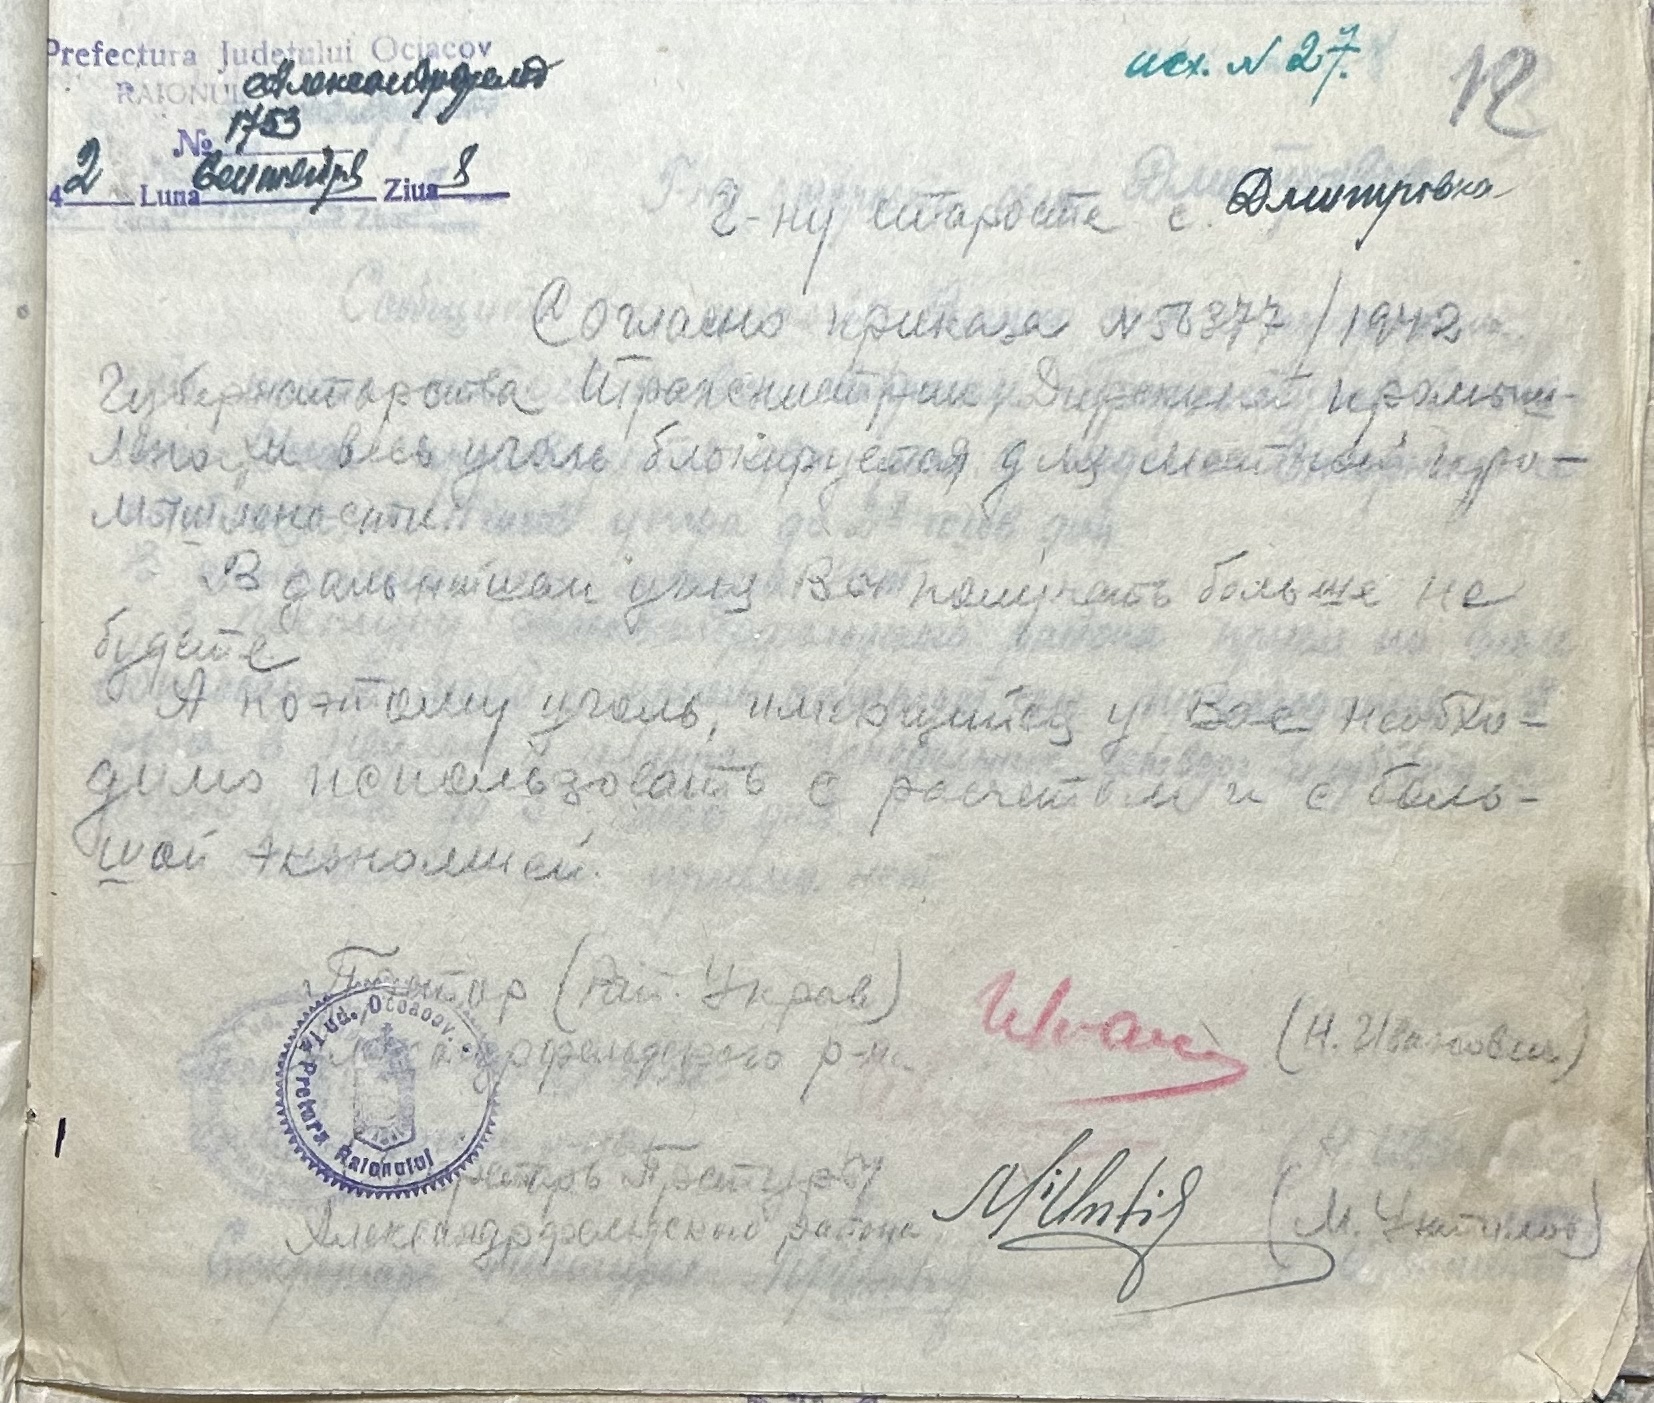 Prefectura Județului Ociacov
RAIONUL Александрфельд
№ 1753
42 Luna Сентября Ziua 8
исх. N 27.
12
Г-ну старосте с. Дмитровка
Согласно приказа N 56377/1942
Губернаторства Транснистрии, Дирекцией промыш-
лености весь уголь блокируется для местной про-
мышлености.
В дальнейшем угля Вы получать больше не
будете
А поэтому уголь, имеющийся у Вас необхо-
димо использовать с расчетом и с боль-
шой экономией.
Претор (
Александрфельдского р-на. (Н. Иванович)
Pretura Raionului Jud. Oceacov
Секретарь Претуры
Александрфельдского района (М.